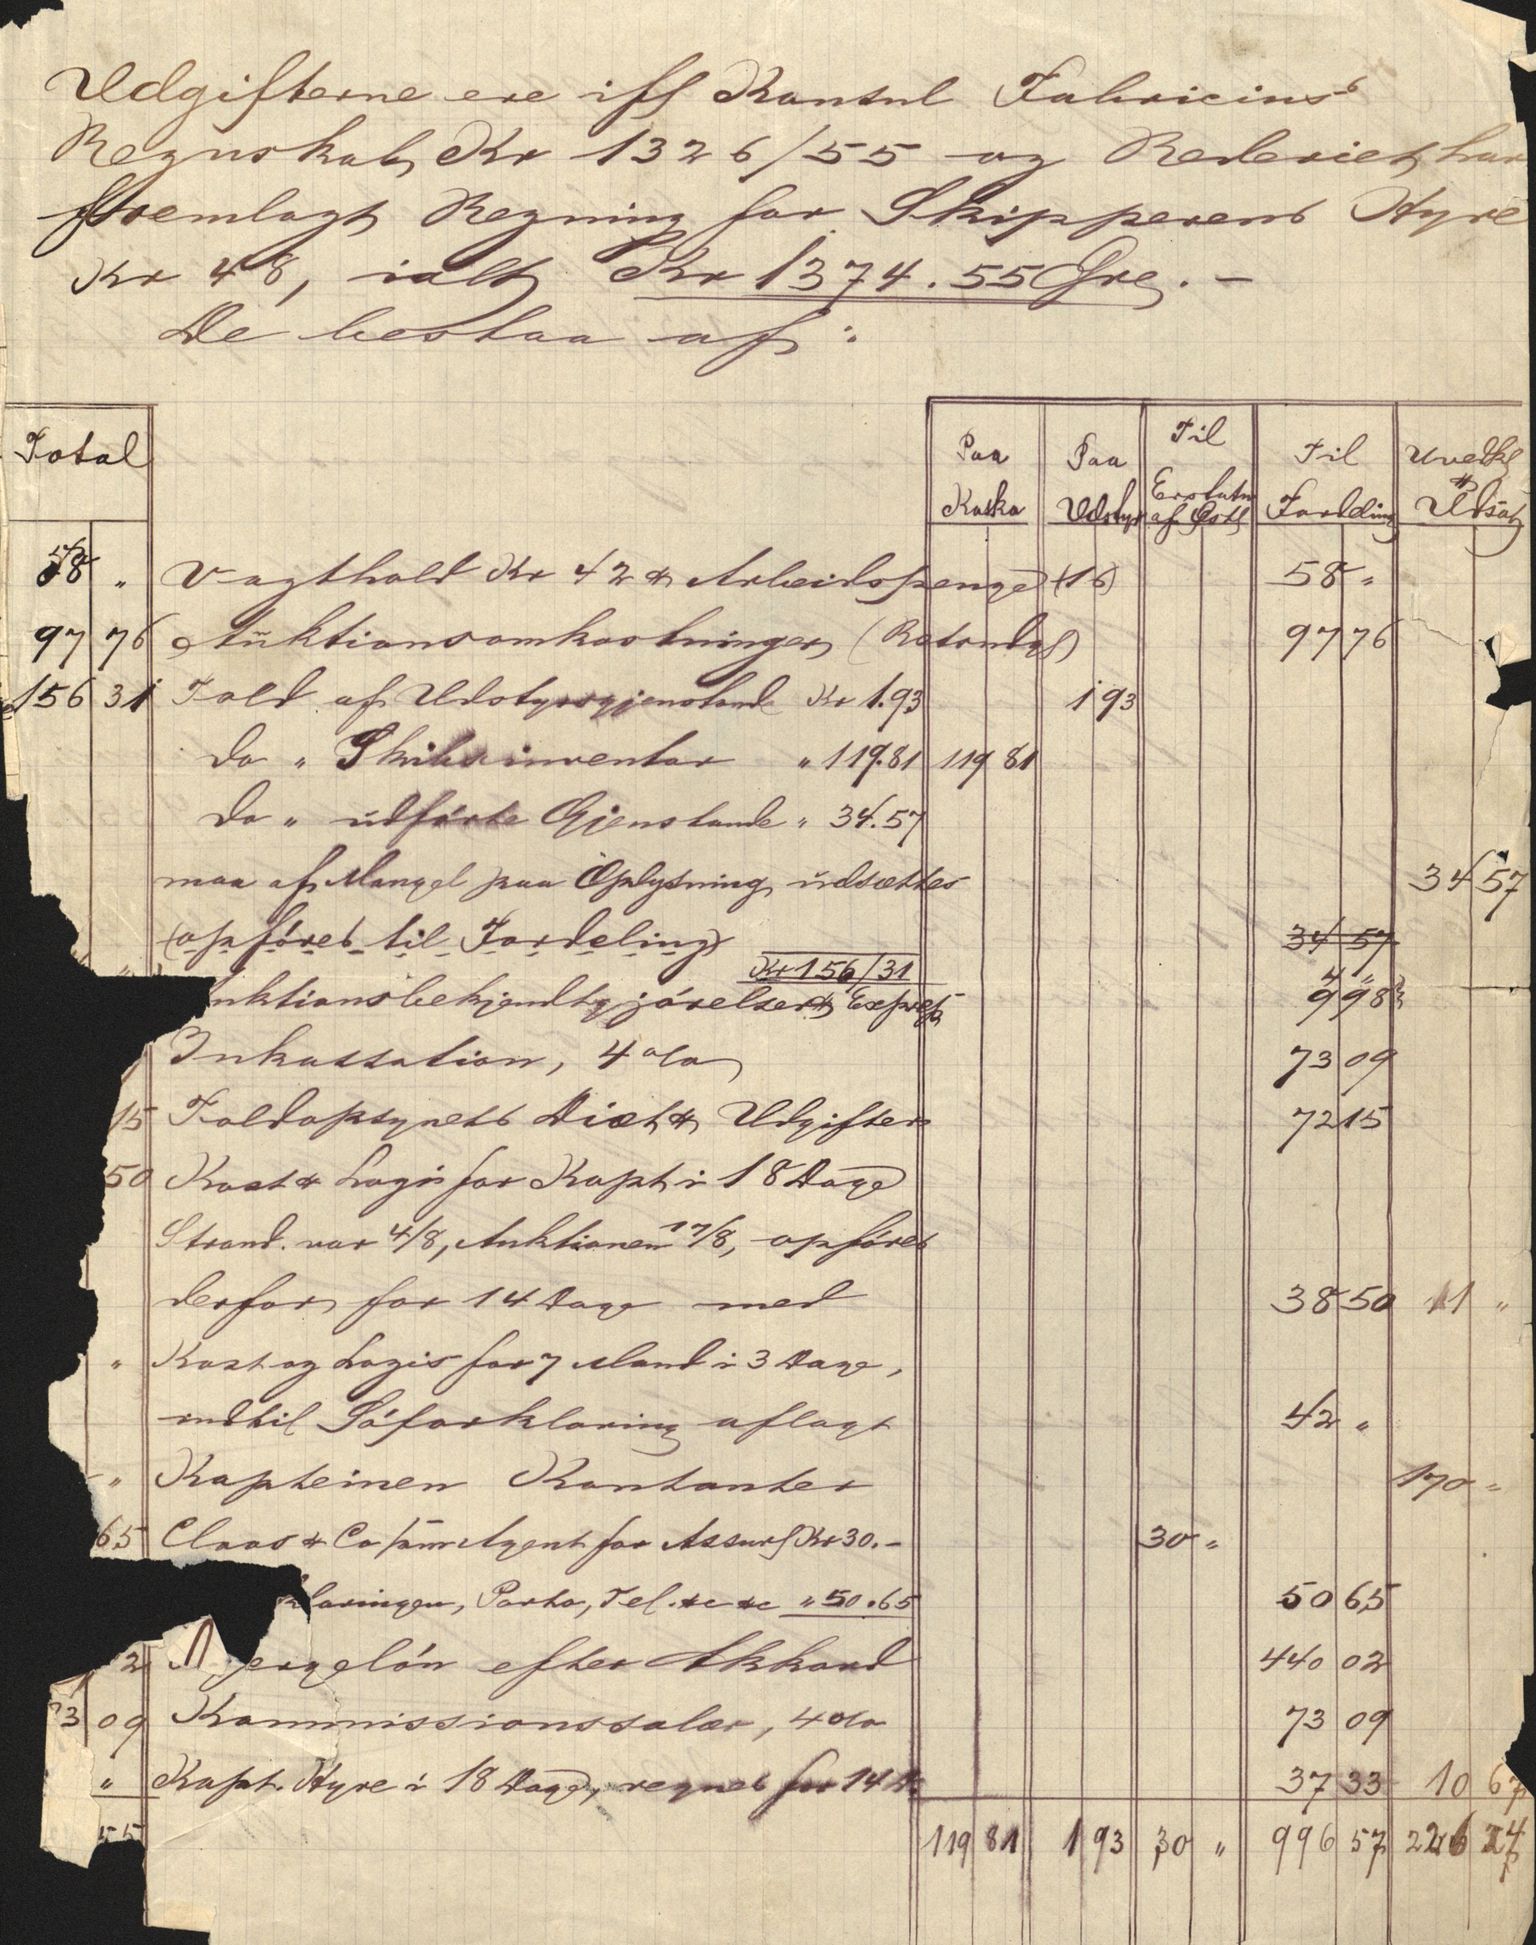 Udgifterne ere iflg Konsul Fabricius's
Regnskab, Kr 1326/55 og Rederiet har
fremlagt Regning for Skipperens Hyre
Kr 48, ialt Kr 1374.55 Øre. -
De bestaa af:
Total Paa Kasko Paa Udstyr Til Erstatn af Til Fordeling Uvedk & Udsat
58 " Vagthold Kr 42 & Arbeidspenge (16) 58 "
97 76 Auktionsomkostninger 97 76
156 31 Told af Udstyrsgjenstand Kr 1.93 1 93
do " Skibsinventar " 119.81 119 81
do " udførte Gjenstande " 34.57
maa af Mangel paa Oplysning udsættes 34 57
(opføres til Fordeling) 34 57
Kr 156/31
uktionsbekjendtgjørelser & Express 9 98
Inkassation, 4 o/o 73 09
15 Toldopsynets Diæt & Udgifter 72 15
50 Kost & Logis for Kapt i 18 Dage
Strand. var 4/8, Auktionen 17/8, opføres
derfor for 14 Dage med 38 50 11 "
" Kost og Logis for 7 Mand i 3 Dage,
indtil Søforklaring aflagt 42 "
" Kapteinen Kontanter 170 "
65 Claas & Co som Agent for Assurf Kr 30.- 30 "
klaringen, Porto, Tel. &c &c " 50.65 50 65
2 Bjergeløn efter Akkord 440 02
73 09 Kommissionssalær, 4 o/o 73 09
" Kapt. Hyre i 18 Dage, regnes for 14 D. 37 33 10 67
55 119 81 1 93 30 " 996 57 226 24